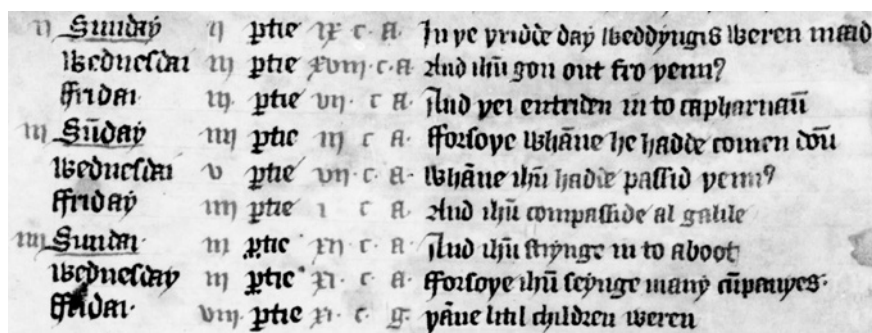 ij Sunday ij ꝑtie ix c. a. In þe þridde day weddyngis weren maad
Wednesdai iij ꝑtie xviij. c. a And ihū gon out fro þenn⁹
ffridai. iij. ꝑtie vij. c a. And þei entriden in to capharnaū
iij Sūday iiij ꝑtie iij c a. fforsoþe whāne he hadde comen doū
Wednesdai v ꝑtie vij. c. a. Whāne ihū hadde passid þenn⁹
ffriday iiij ꝑtie i c a. And ihū compasside al galile
iiij Sundai. iij ꝑtie xij c. a. And ihū stiynge in to a boot
Wednesday ij ꝑtie xi. c. a. fforsoþe ihū seynge many cūpanyes.
ffridai. viij. ꝑtie xi. c. g. þāne litil children weren